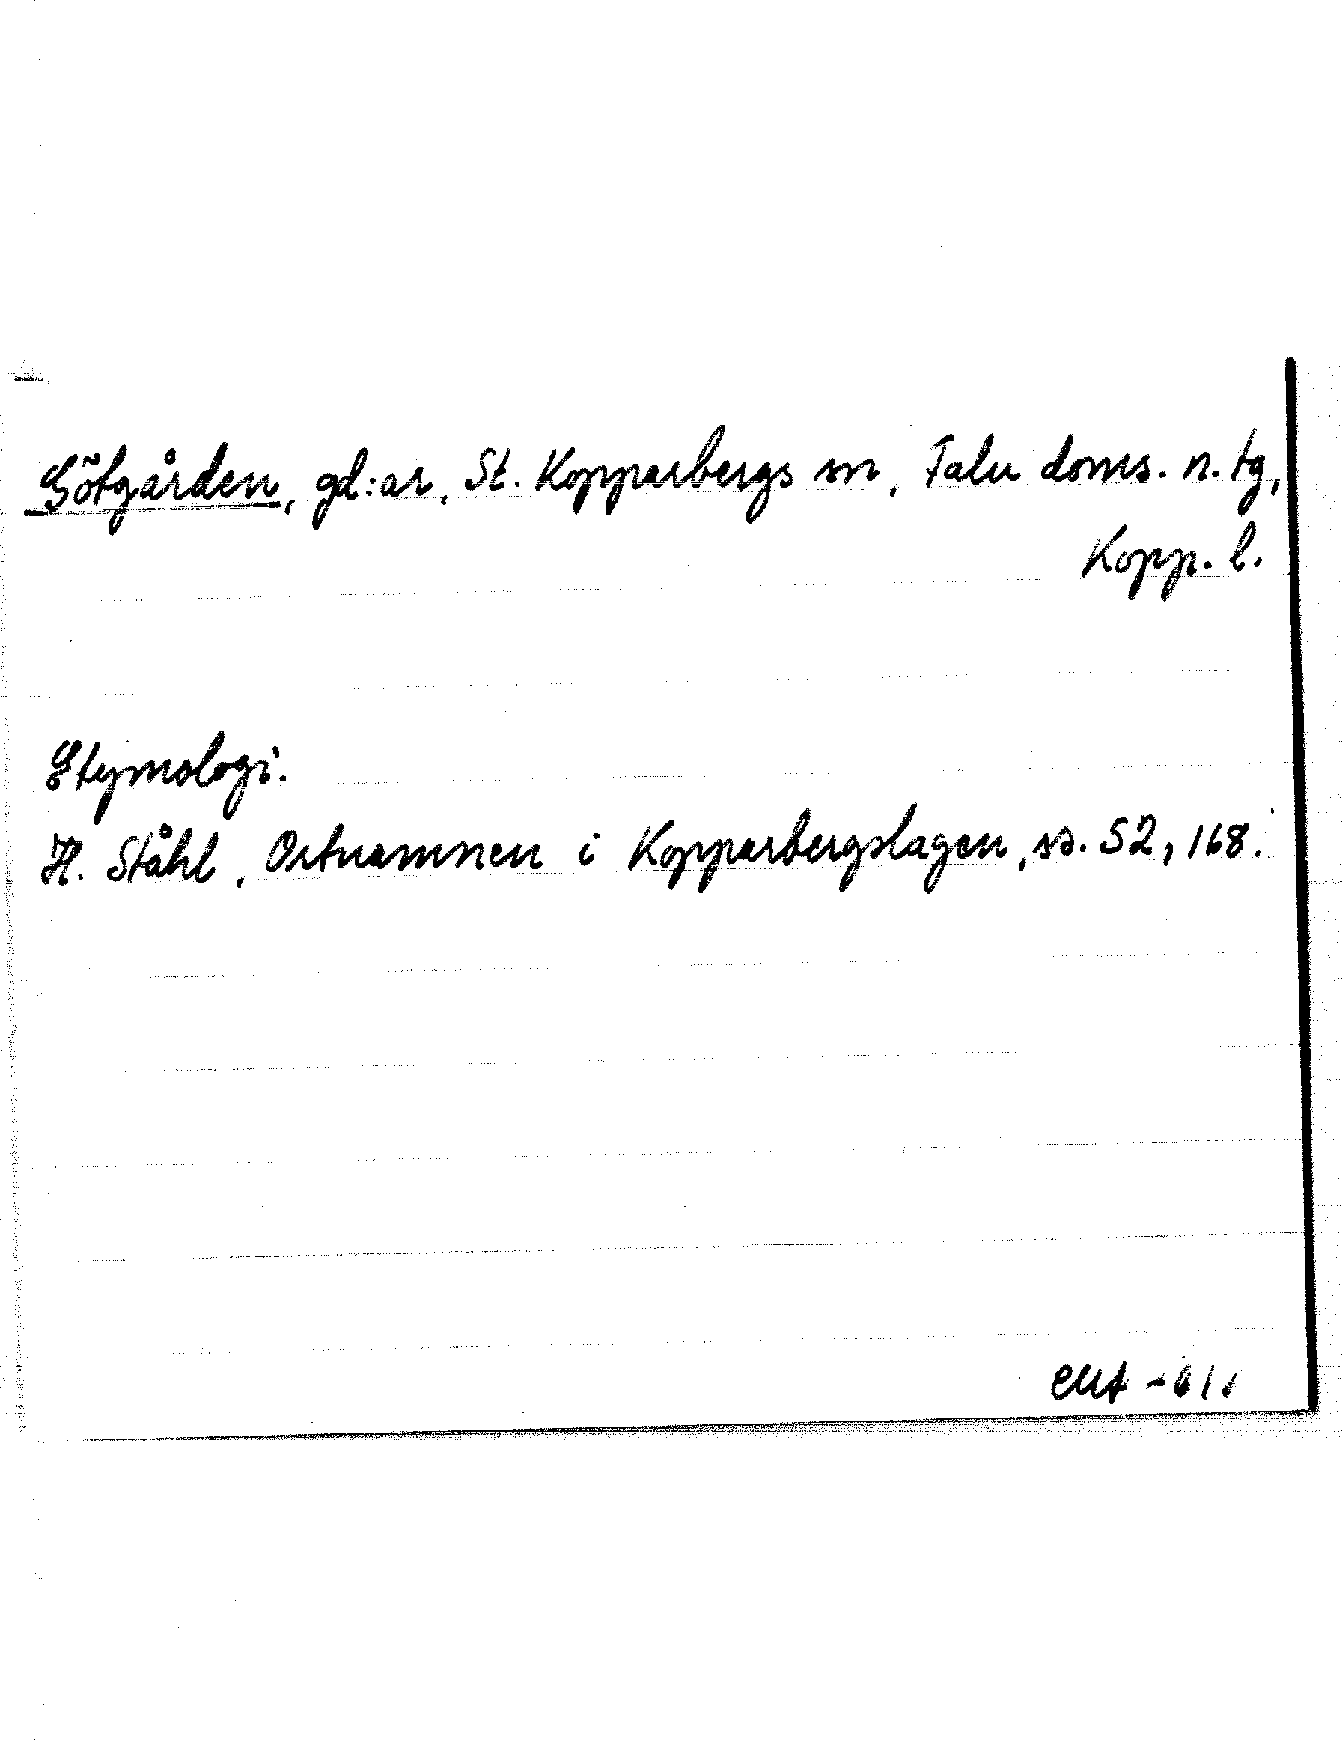 Götgården, gd:ar, St. Kopparbergs sn, Falu doms. n. tg,
Kopp. l.
Etymologi.
H. Ståhl, Ortnamnen i Kopparbergslagen, ss. 52, 168.